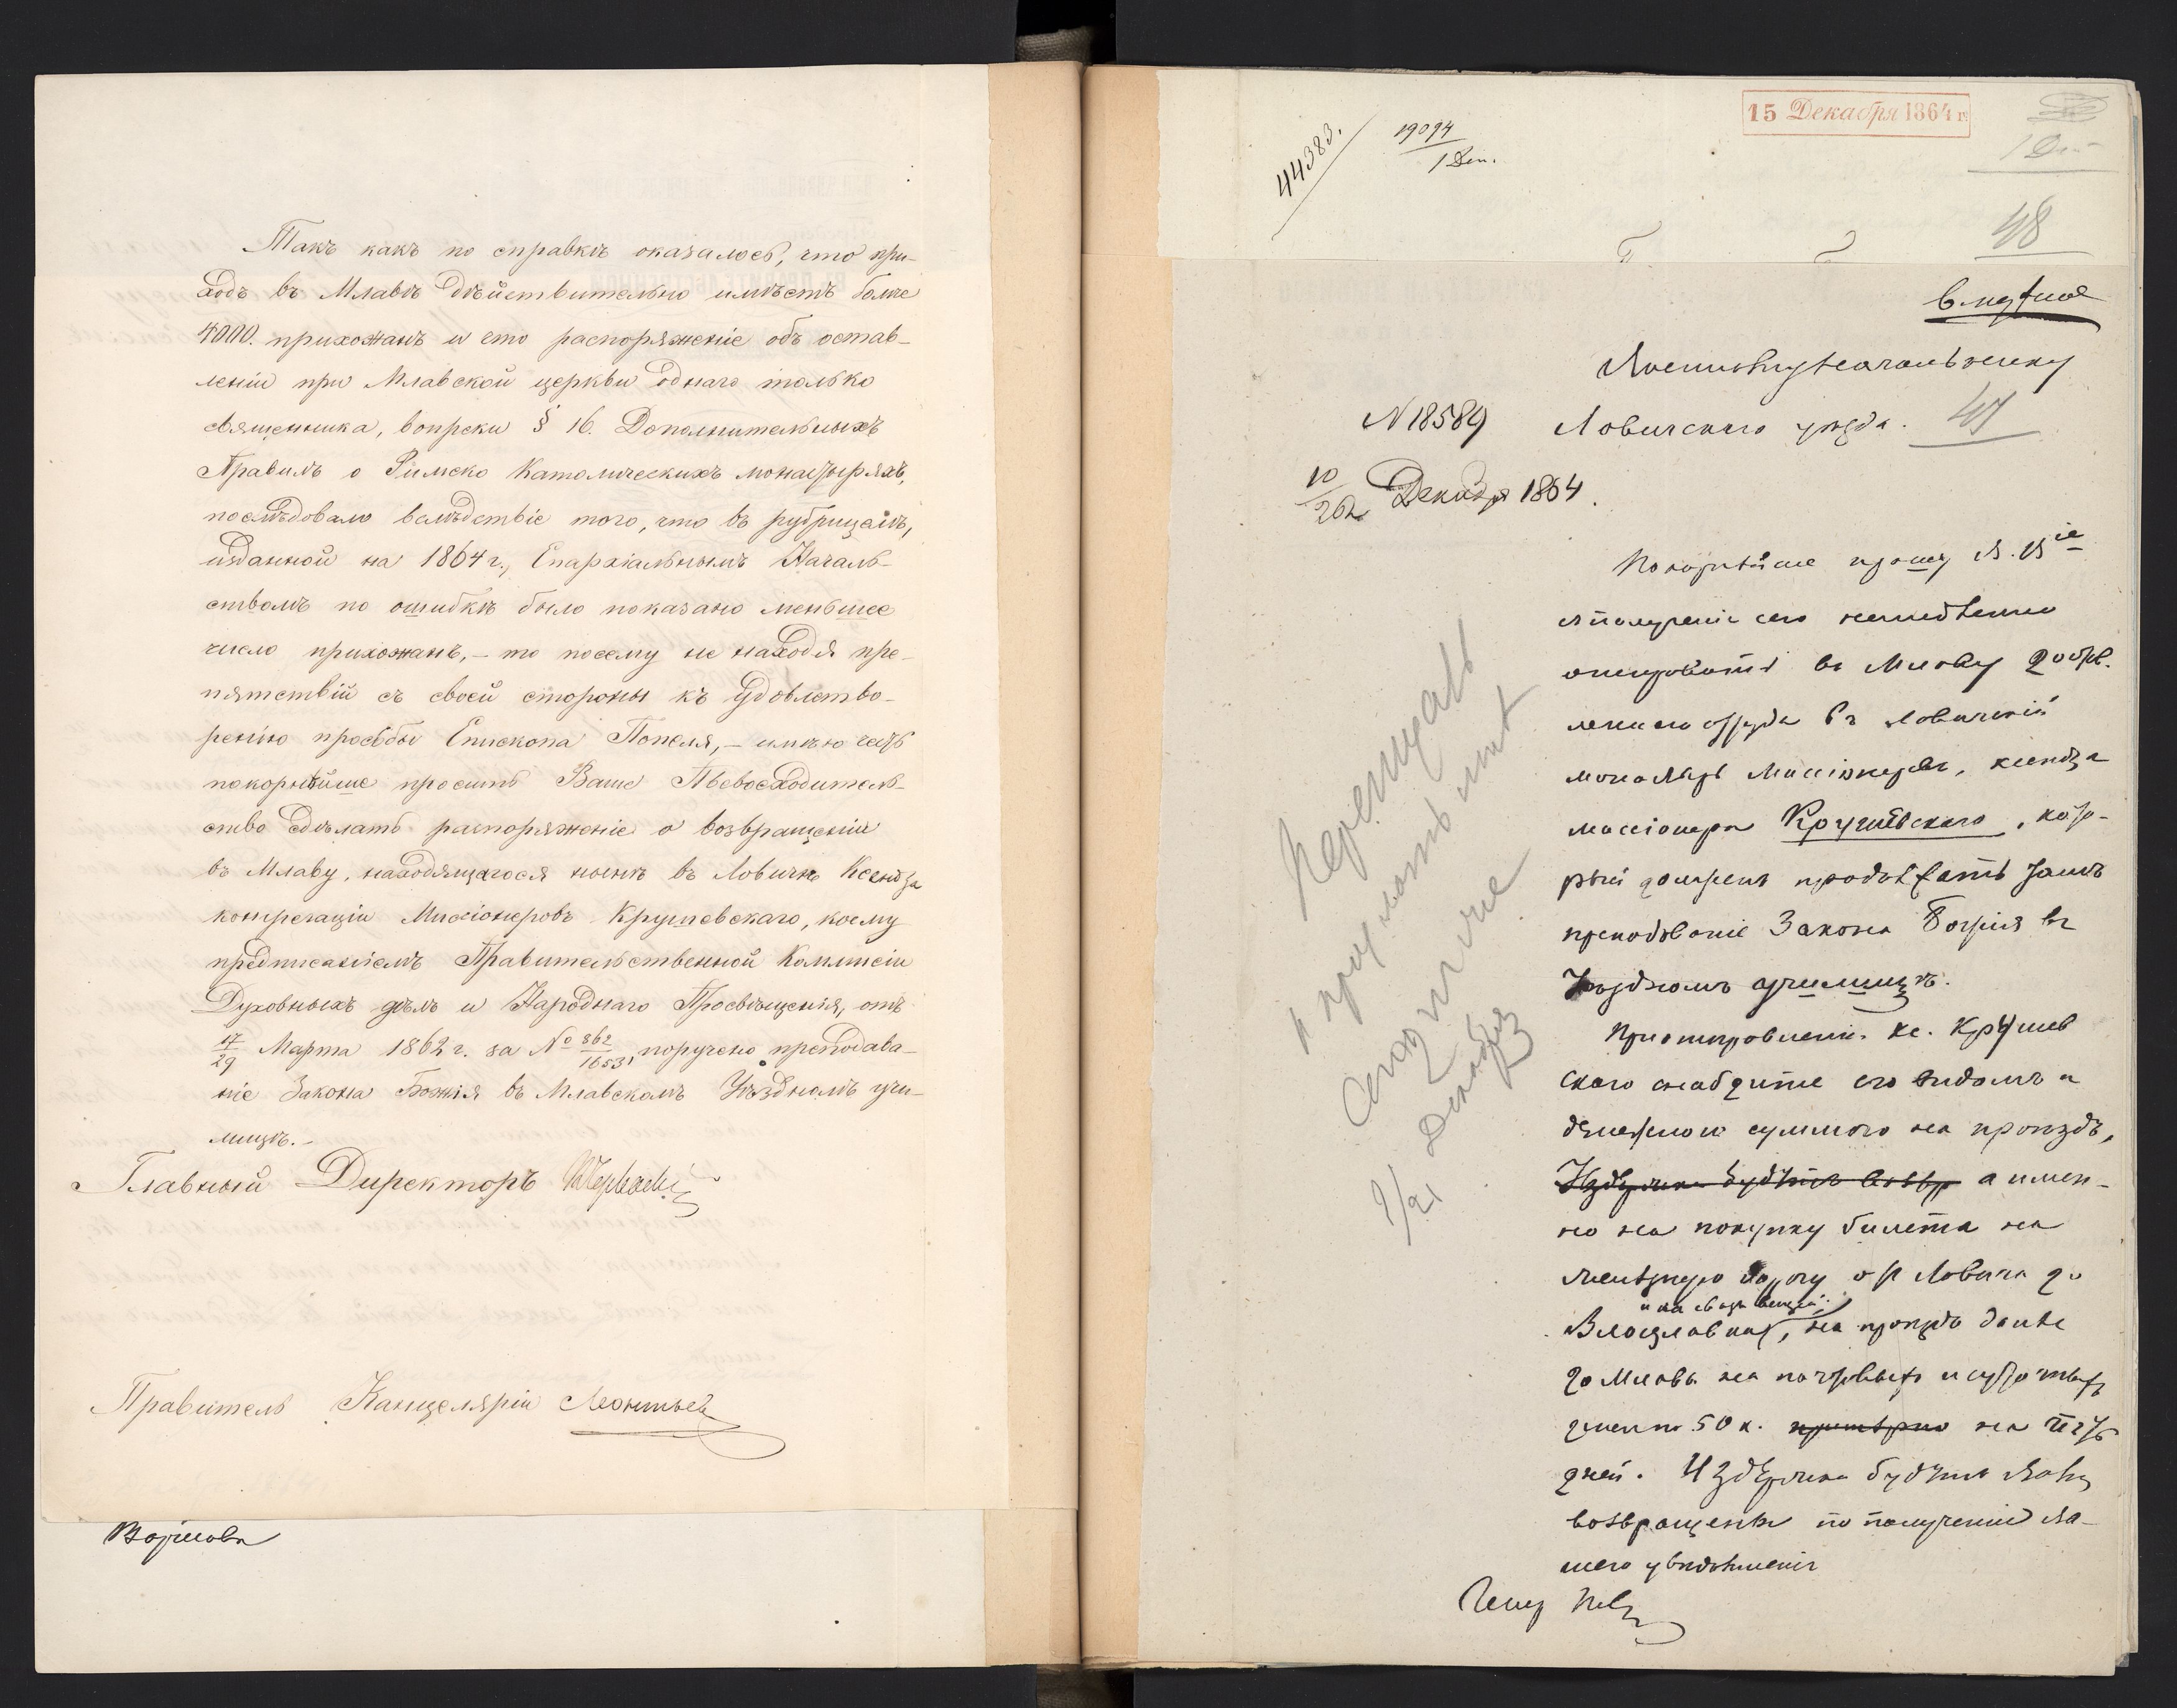 Такъ какъ по справкѣ оказалось, что при-
ходъ въ Млавѣ дѣйствительно имѣетъ болѣе
4000. прихожанъ и что распоряженіе объ остав-
леніи при Млавской церкви однаго только
священника, вопреки § 16. Дополнительныхъ
Правилъ о Римско Католическихъ монастыряхъ,
послѣдовало вслѣдствіе того, что въ рубрицеллѣ,
изданной на 1864 г., Епархіальнымъ Началь-
ствомъ по ошибкѣ было показано меньшее
число прихожанъ, – то посему не находя пре-
пятствій съ своей стороны къ удовлетво-
ренію просьбы Епископа Попеля, – имѣю честь
покорнѣйше просить Ваше Превосходитель-
ство сдѣлать распоряженіе о возвращеніи
въ Млаву, находящагося нынѣ въ Ловичѣ Ксендза
конгрегаціи Миссіонеровъ Крушевскаго, коему
предписаніемъ Правительственной Коммисіи
Духовныхъ дѣлъ и Народнаго Просвѣщенія, отъ
17/29 Марта 1862 г. за № 862/1653, поручено преподава-
ніе Закона Божія въ Млавскомъ Уѣздномъ учи-
лищѣ. –
Главный Директоръ
Правитель Канцеляріи Леонтьев
Варшава
15 Декабря 1864 г.
44383.
19094
1 Ден.
1 Ден
48
Военному Начальнику
№ 18589 Ловичскаго уѣзда. 47
10 Декабря 1864.
Покорнѣйше прошу В. В-іе
по полученіи сего немедленно
отправить въ Млаву доставл.
въ Ловичскій
монастырь Миссіонеровъ, ксендза
миссіонера Крушевскаго, кото-
рый долженъ продолжать тамъ
преподованіе Закона Божія въ
Уѣздномъ училищѣ.
При отправленіи кс. Крушев
скаго снабдите его видомъ и
денежною суммою на проѣздъ,
Издержки будутъ а имен-
но на покупку билета на
желѣзную дорогу от Ловича до
и на вещей
Влоцлавка, на проѣздъ далѣе
до Млавы на почтовыхъ и суточныхъ
50 к. примѣрно на пять
дней. Издержки будутъ Вамъ
возвращены по полученіи Ва-
шего увѣдомленія
Переписать
Декабря